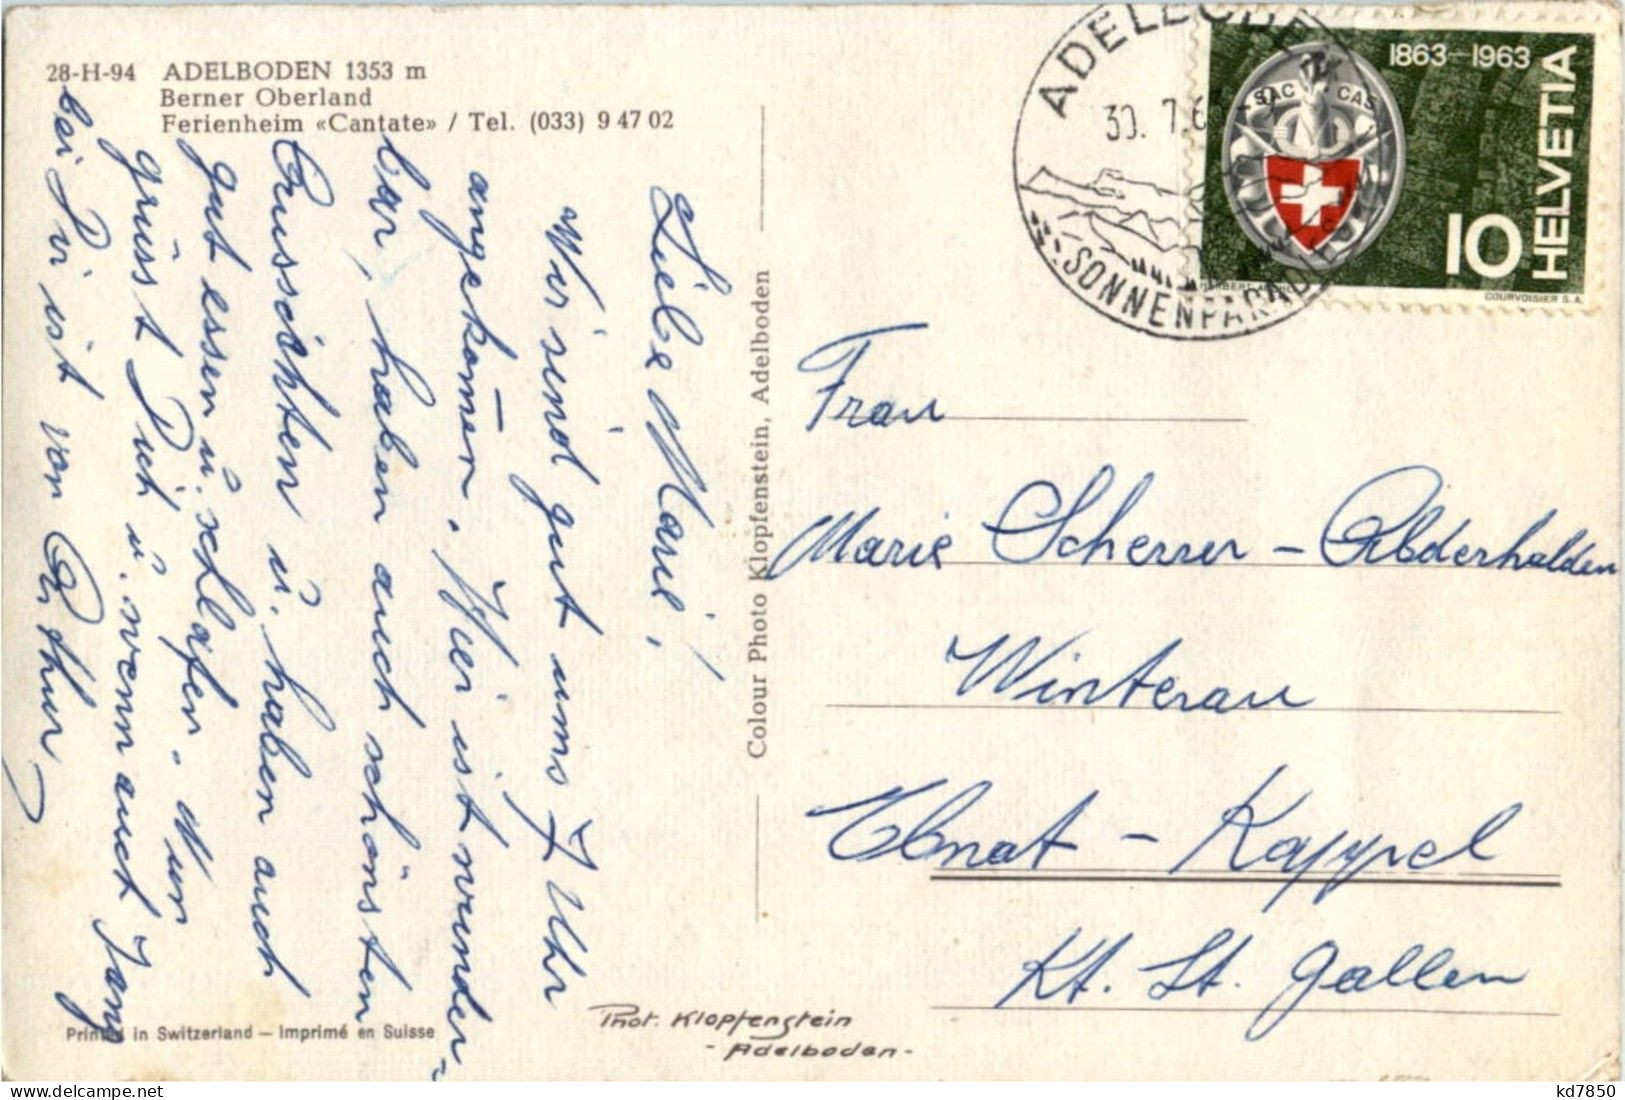 28-H-94 ADELBODEN 1353 m
Berner Oberland
Ferienheim «Cantate» / Tel. (033) 9 47 02
Liebe Marie,
Wir sind gut ums 7 Uhr
angekom̄en. Hier ist wunder-
bar, haben auch schönsten
Aussichten u. haben auch
gut essen u. schlafen. Nun
grüsst Dich u. wenn auch lang
bei Dir ist von Arthur
Colour Photo Klopfenstein, Adelboden
ADELBODEN
30. 7. 6
SONNENPARADIES
1863–1963
SAC CAS
HELVETIA
10
COURVOISIER S.A.
Frau
Marie Scherrer – Alderhalden
Winterau
Ebnat – Kappel
Kt. St. Gallen
Phot. Klopfenstein
- Adelboden -
Printed in Switzerland — Imprimé en Suisse
kd7850